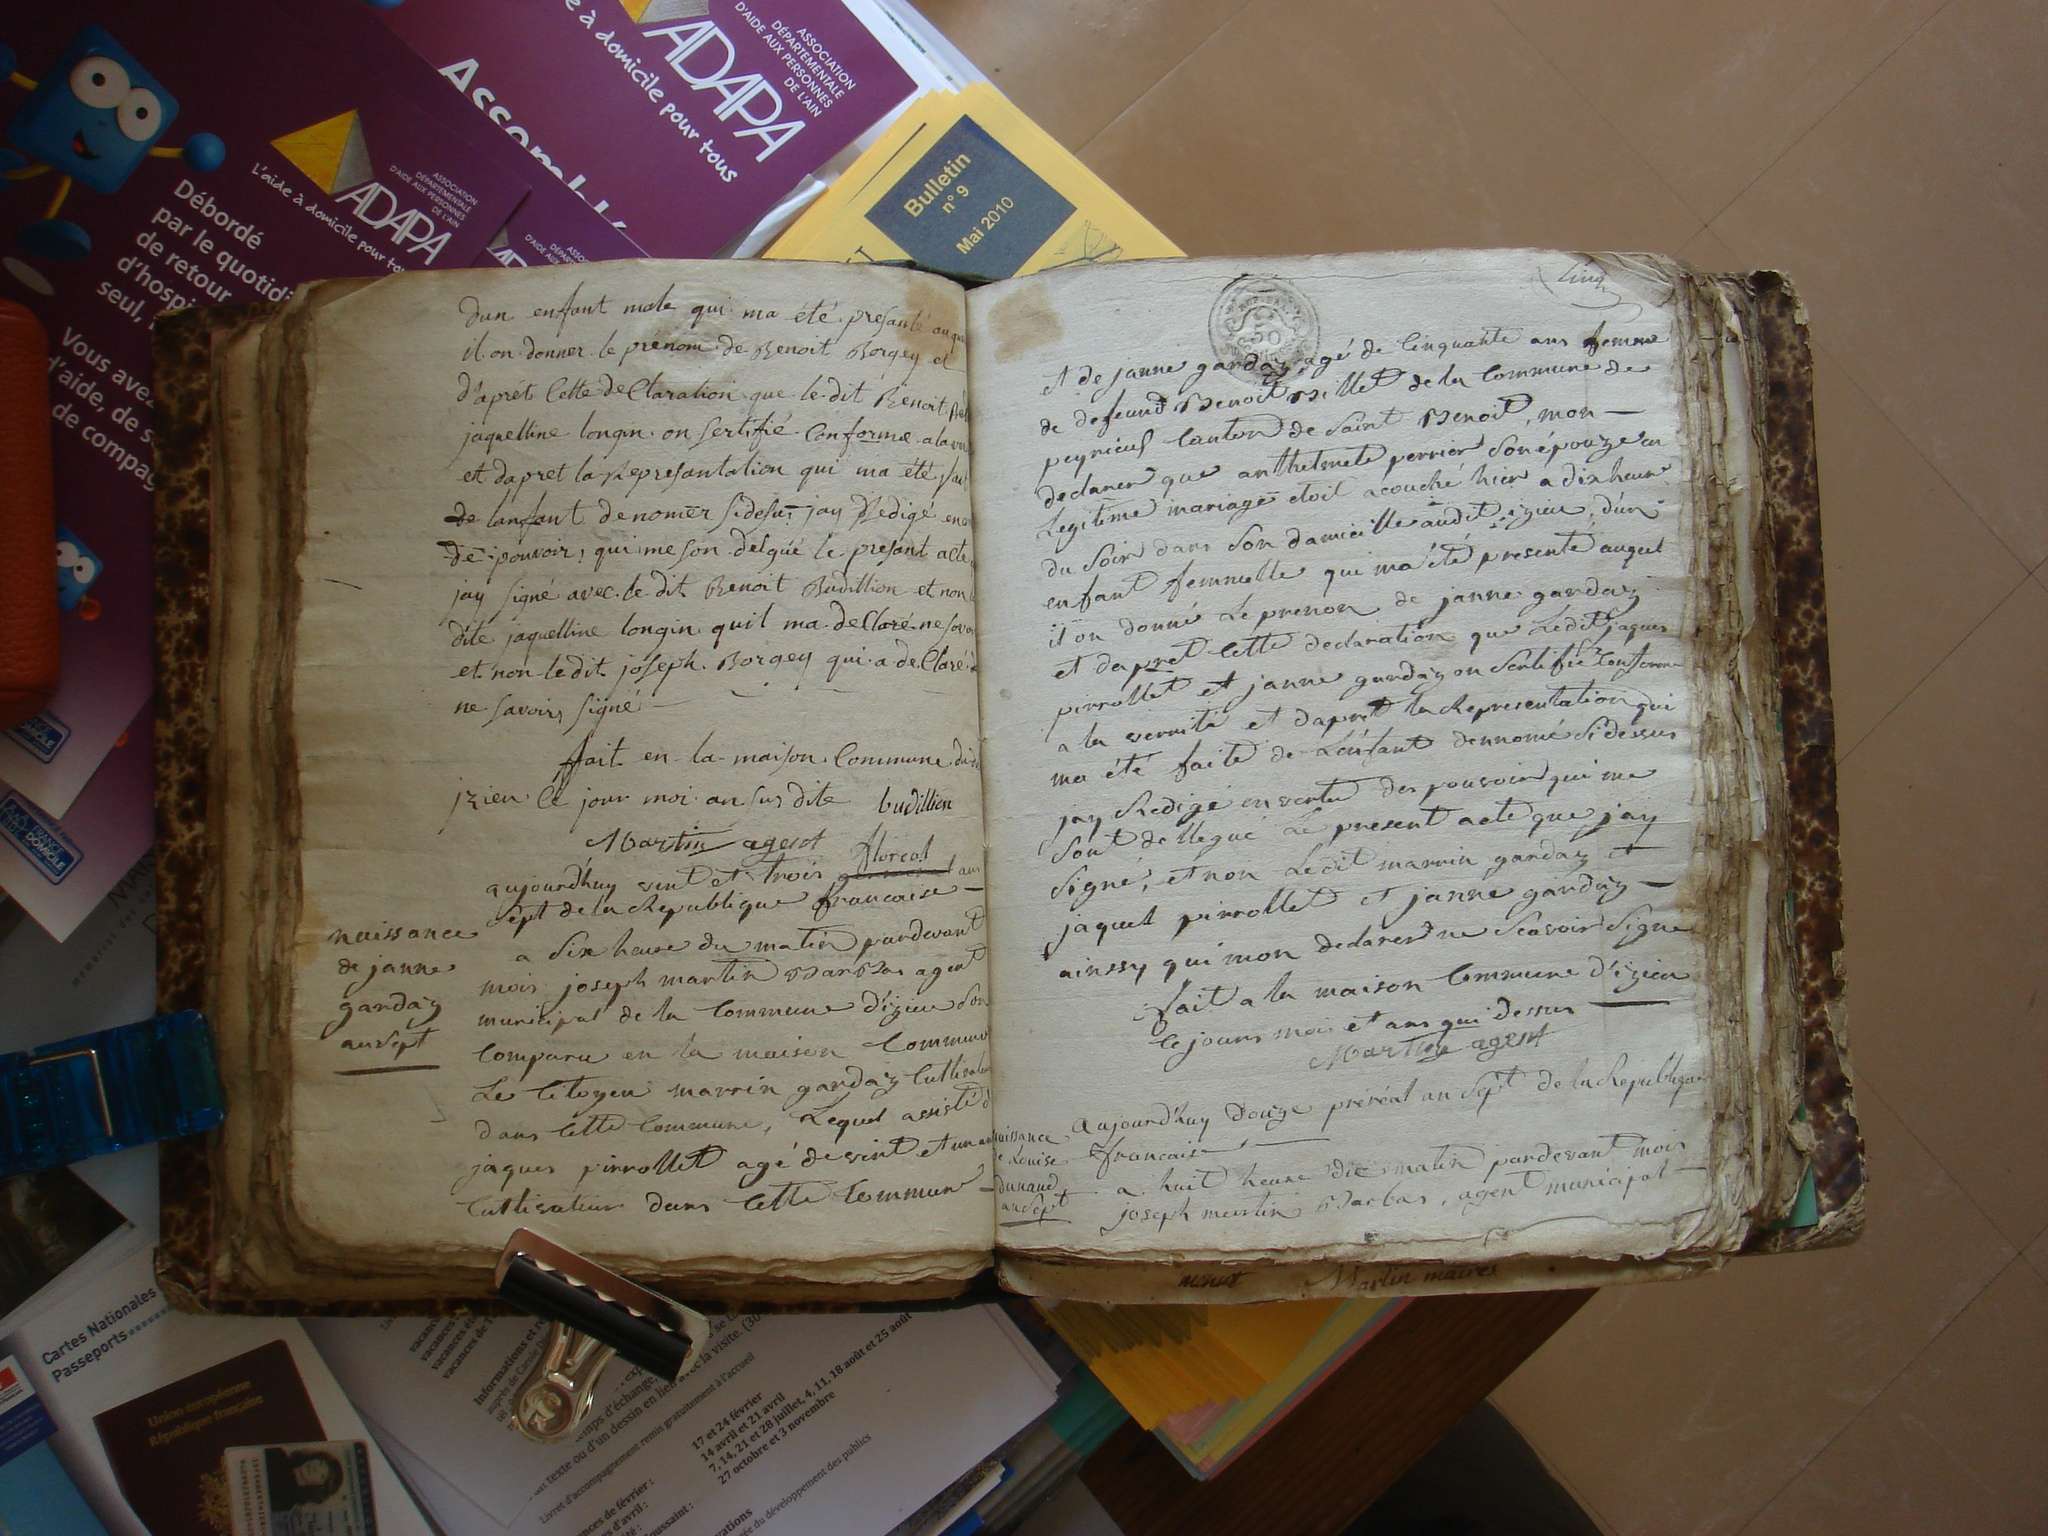 ASSOCIATION
DÉPARTEMENTALE
D'AIDE AUX PERSONNES
DE L'AIN
ADAPA
e à domicile pour tous
ASSOCIATION
DÉPARTEMENTALE
D'AIDE AUX PERSONNES
DE L'AIN
ADAPA
L'aide à domicile pour to
Débordé
par le quotidi
de retour
d'hospi
seul,
Vous avez
d'aide, de s
de compag
Bulletin
n° 9
Mai 2010
FRANCE
DOMICILE
dun enfant male qui ma été presanté auque
il on donner le prénom de Benoit Borgey et
d'apret cette deClaration que le dit Benoit Bud
jaquelline longin on sertifié conforme a la ver
et dapret la Representation qui ma été fait
de lanfant denomér sidesus jay Redigé en
de pouvoir qui me son delgué le presant acte
jay signé avec le dit Benoit Budillion et non l
dite jaquelline longin quil ma deClaré ne savoi
et non le dit joseph Borgey qui a deClaré
ne savoir signé
fait en la maison Commune du
izieu le jour moi an sus dite budillion
Martin agent
naissance
de janne
garday
an sept
aujourdhuy vint et trois floreal germinal ans
sept de la Republique francaise
a six heure du matin pardevant
mois joseph martin Barbas agent
municipal de la Commune d'izieu son
comparu en la maison Commune
Le citoyen marrin garday Cultivateur
dans cette Commune, Lequel assisté d
jaques pirrollet agé de vint et un an
cultivateur dans cette Commune
cinq
50
et de janne garday agé de cinquante ans femme
de defeund Benoit Billet de la Commune de
peyrieus canton de saint Benoit, mon
declarer que anthelmete perrier son épouze en
Legitime mariage etoit acouché hier a dix heure
du soir dans son damicille audit izieu, dun
enfant femmelle qui ma été presenté auquel
il on donné Le prenon de janne garday
et dapret cette declaration que Ledit jaques
pirrollet et janne garday on sertifié conforme
a la verrite et dapret la Representation qui
ma été faite de Lenfant dennomé sidessus
jay Redigé en vertu des pouvoir qui me
sont dellegué Le present acte que jay
signé, et non Ledit marrin garday et
jaquet pirrollet et janne garday
ainssy qui mon declarer ne sçavoir signe
fait a la maison Commune d'izieu
le jours mois et ans qui dessus
Martin agent
naissance
de Louise
dunand
an sept
aujourd'huy douze preréal an sept de la Republique
francaise
a huit heure du matin pardevant mois
joseph martin Barbas, agent municipal
Martin maires
Cartes Nationales
Passeports
Union européenne
République française
Informations et r
Livret d'accompagnement remis gratuitement à l'accueil
17 et 24 février
14 avril et 21 avril
7, 14, 21 et 28 juillet, 4, 11, 18 août et 25 août
27 octobre et 3 novembre